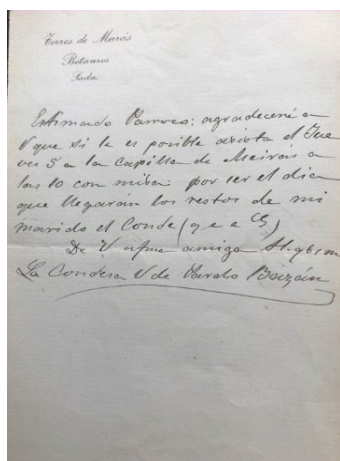 Torres de Meirás
Betanzos
Sada
Estimado Parroco: agradeceré a
V que si le es posible asista el Jue
ves 5 a la capilla de Meirás a
las 10 con misa por ser el dia
que llegaran los restos de mi
marido el Conde (q e e G)
De V afma amiga
La Condesa V de Pardo Bazán